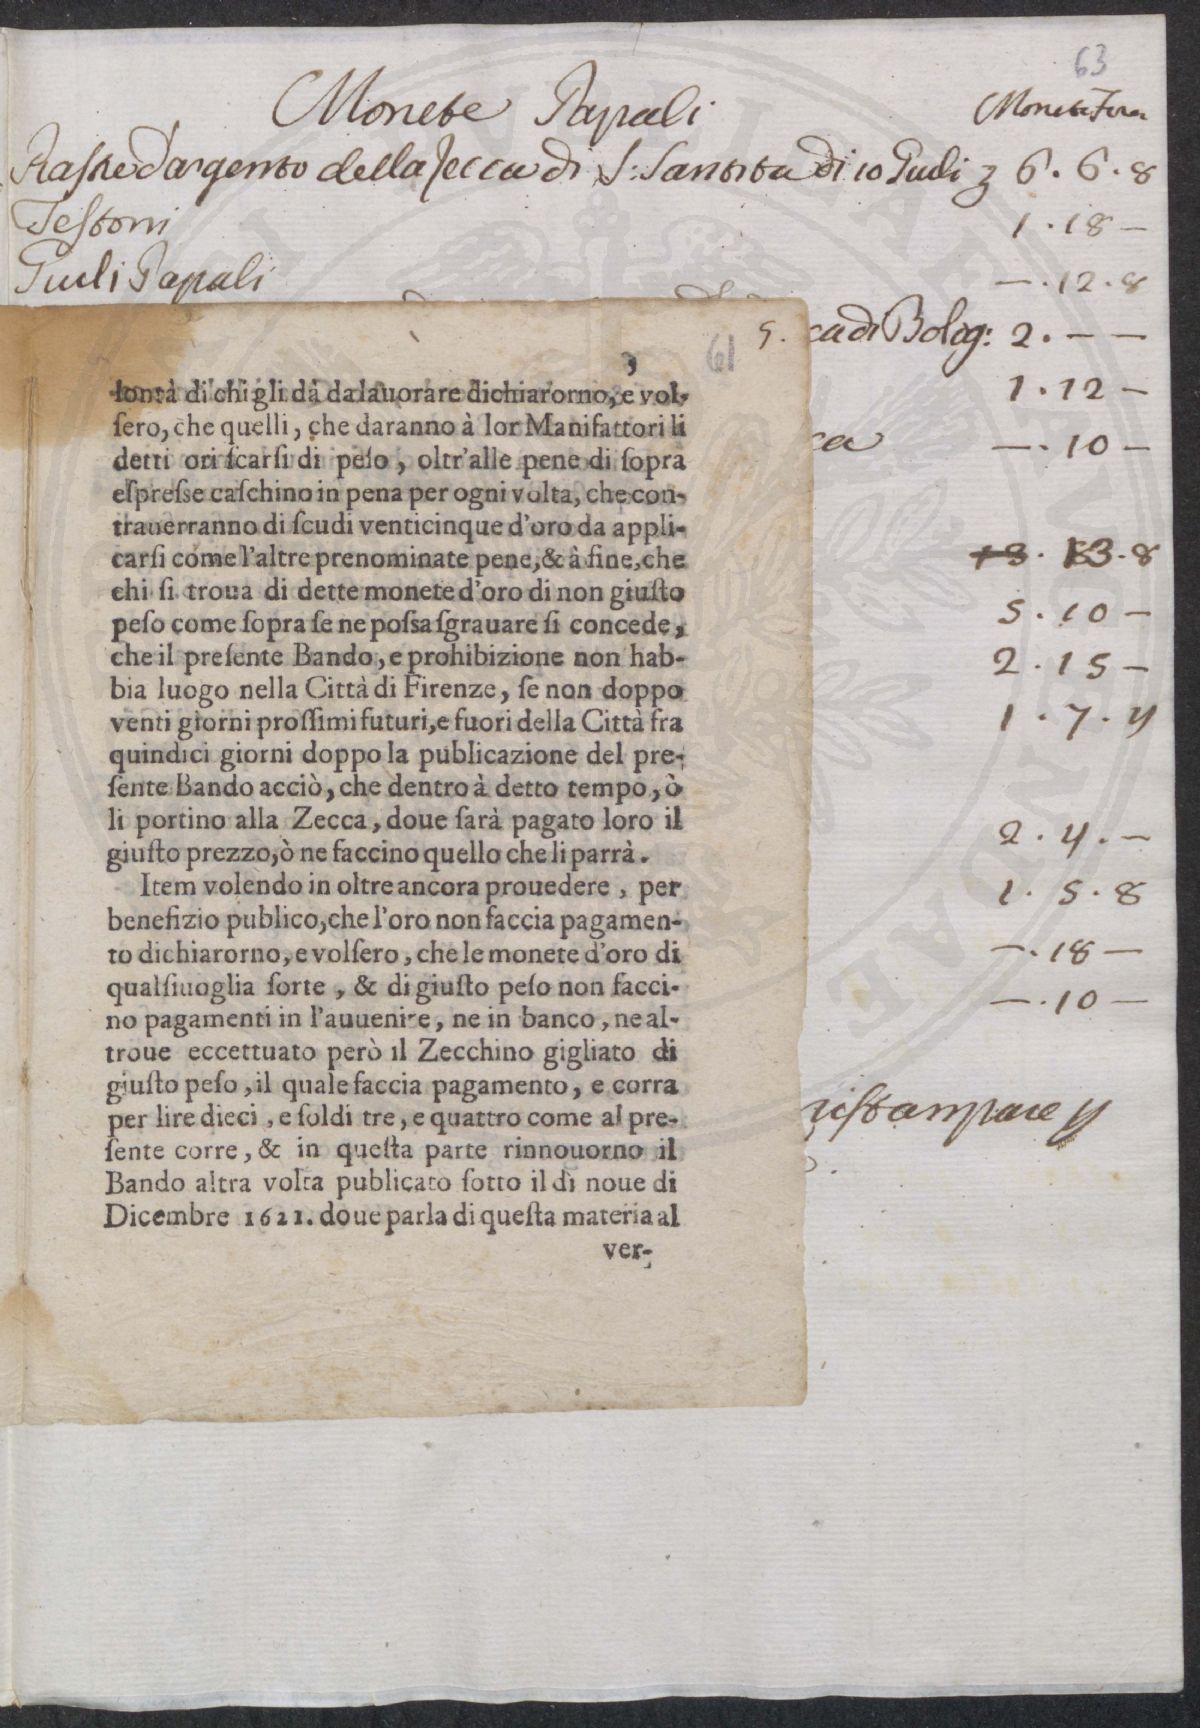 63
Monete Papali
Piastre d'argento della Zecca di S: Santita di 10 Giuli 6. 6. 8
Testoni 1. 18 —
Giuli Papali —. 12. 8
ca di Bolog: 2. — —
1. 12 —
ca —. 10 —
13. 8
5. 10 —
2. 15 —
1. 7. 4
2. 4. —
1. 5. 8
—. 18 —
—. 10 —
ristampare
61
5.
lontà di chi gli dà da lauorare dichiarorno, e vol-
ſero, che quelli, che daranno à lor Manifattori li
detti ori ſcarſi di peſo, oltr'alle pene di ſopra
eſpreſſe caſchino in pena per ogni volta, che con-
trauerranno di ſcudi venticinque d'oro da appli-
carſi come l'altre prenominate pene, & à fine, che
chi ſi troua di dette monete d'oro di non giuſto
peſo come ſopra ſe ne poſſa ſgrauare ſi concede,
che il preſente Bando, e prohibizione non hab-
bia luogo nella Città di Firenze, ſe non doppo
venti giorni proſſimi futuri, e fuori della Città fra
quindici giorni doppo la publicazione del pre-
ſente Bando acciò, che dentro à detto tempo, ò
li portino alla Zecca, doue ſarà pagato loro il
giuſto prezzo, ò ne faccino quello che li parrà.
Item volendo in oltre ancora prouedere, per
benefizio publico, che l'oro non faccia pagamen-
to dichiarorno, e volſero, che le monete d'oro di
qualſiuoglia ſorte, & di giuſto peſo non facci-
no pagamenti in l'auuenire, ne in banco, ne al-
troue eccettuato però il Zecchino gigliato di
giuſto peſo, il quale faccia pagamento, e corra
per lire dieci, e ſoldi tre, e quattro come al pre-
ſente corre, & in queſta parte rinnouorno il
Bando altra volta publicato ſotto il dì noue di
Dicembre 1621. doue parla di queſta materia al
ver-